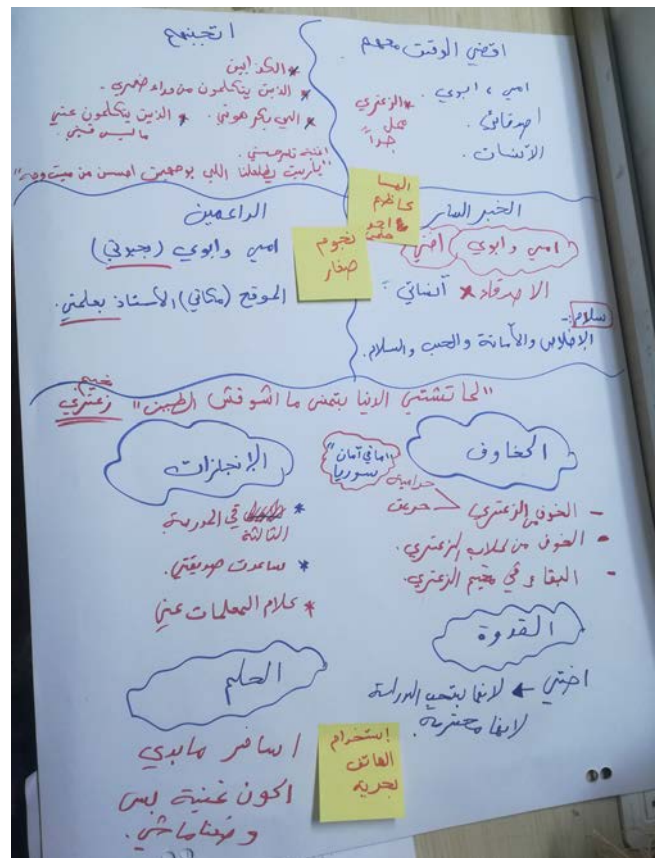 اقضي الوقت معهم
امي، ابوي.
أصدقائي.
الآنسات.
*الزعتري
ممل
جداً
اتجنبهم
*الكذابين
*الذين يتكلمون من وراء ظهري.
*اللي بكرهوني.
*الذين يتكلمون عني
ما ليس فيني.
الخبر السار
امي وابوي
أختي
الاصدقاء * آنساتي
سلام:-
الإخلاص والأمانة والحب والسلام.
الداعمين
امي وابوي (بحبوني)
الموقع (مكاني) الأستاذ بعلمني.
نجوم
صغار
"لما تشتي الدنيا بتمنى ما اشوفش الطين"
مخيم
زعتري
المخاوف
"ما في أمان"
سوريا
حرامية
- الخوف من الزعتري
- الخوف من كلاب الزعتري.
- البقاء في مخيم الزعتري.
الإنجازات
* في المدرسة
الثالثة
* ساعدت صديقتي.
* كلام المعلمات عني
القدوة
اختي ← لانها بتحب الدراسة
لانها محترمة.
الحلم
اسافر ما بدي
اكون غنية بس
وضعنا ماشي.
إستخدام
الهاتف
بحرية